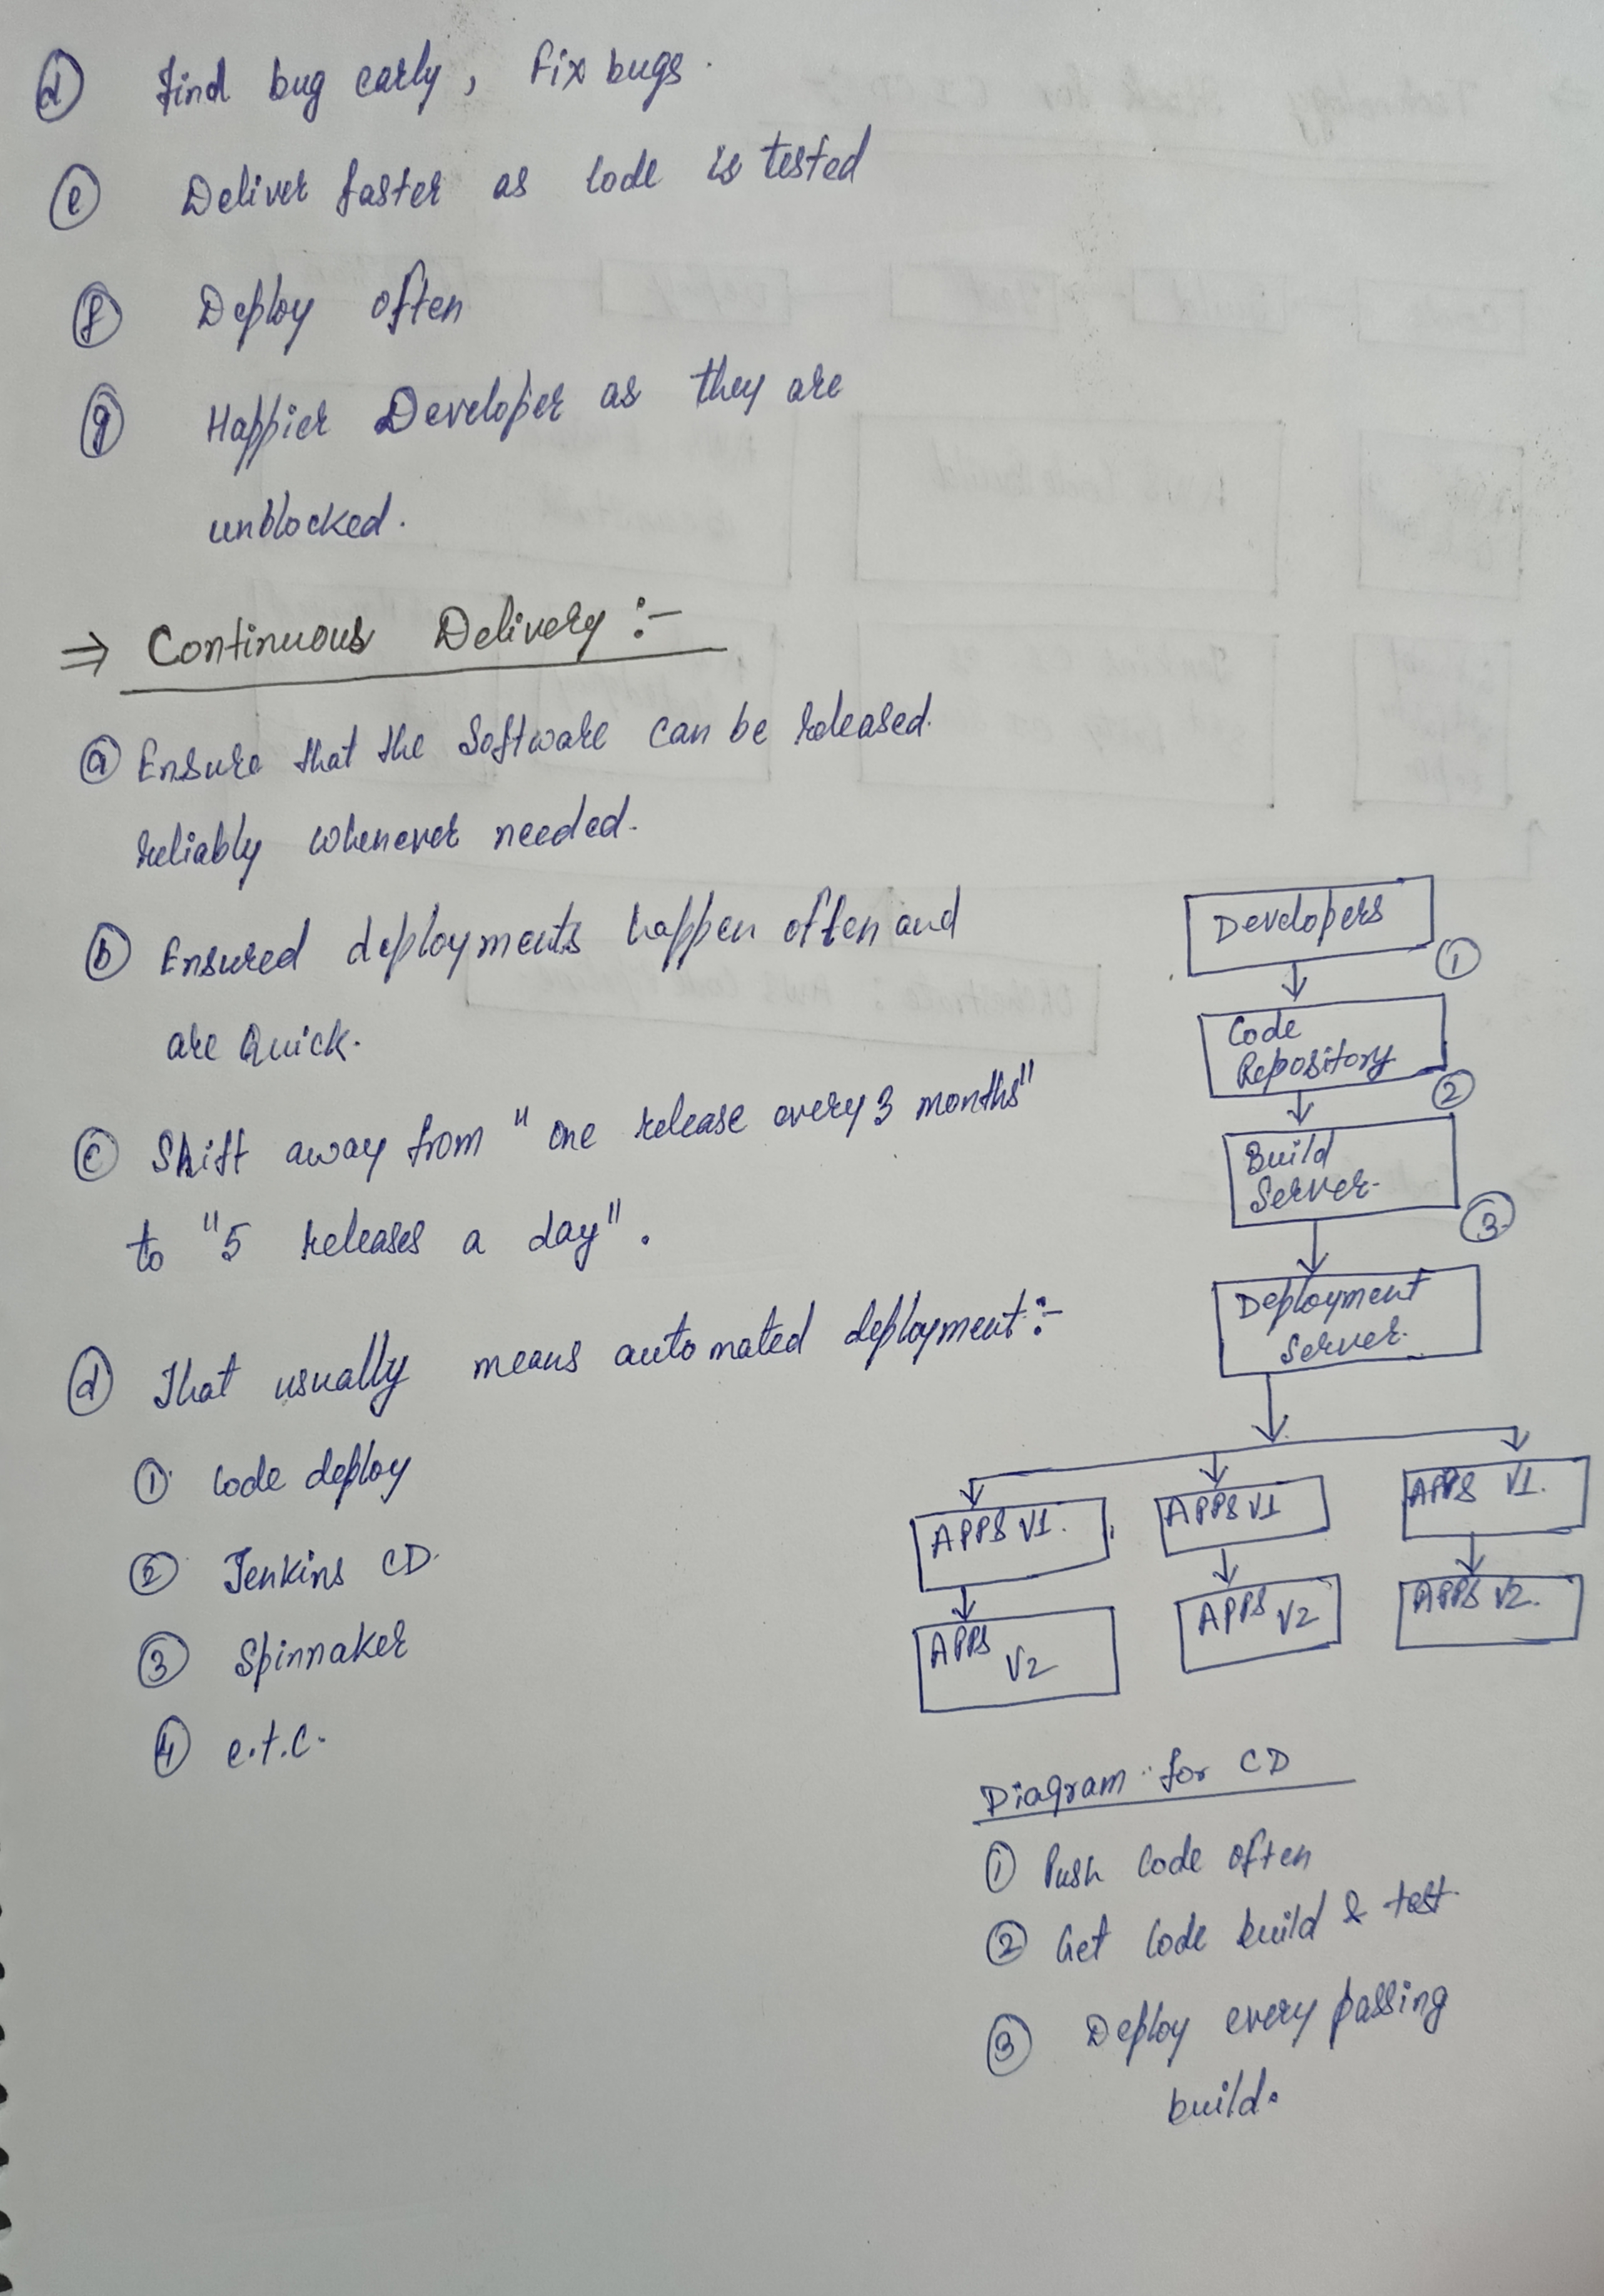 d Find bug early, fix bugs.
e Deliver faster as code is tested
f Deploy often
g Happier Developer as they are
unblocked.
⇒ Continuous Delivery :-
a Ensure that the Software can be released.
reliably whenever needed.
b Ensured deployments happen often and
are Quick.
c Shift away from " one release every 3 months"
to "5 releases a day".
d That usually means automated deployment :-
1 Code deploy
2 Jenkins CD.
3 Spinnaker
4 e.t.c.
Developers
1
Code
Repository
2
Build
Server.
3
Deployment
Server.
APPS V1.
APPS V1
APPS V1.
APPS V2
APPS V2
APPS V2.
Diagram for CD
1 Push Code often
2 Get Code build & test.
3 Deploy every passing
build.